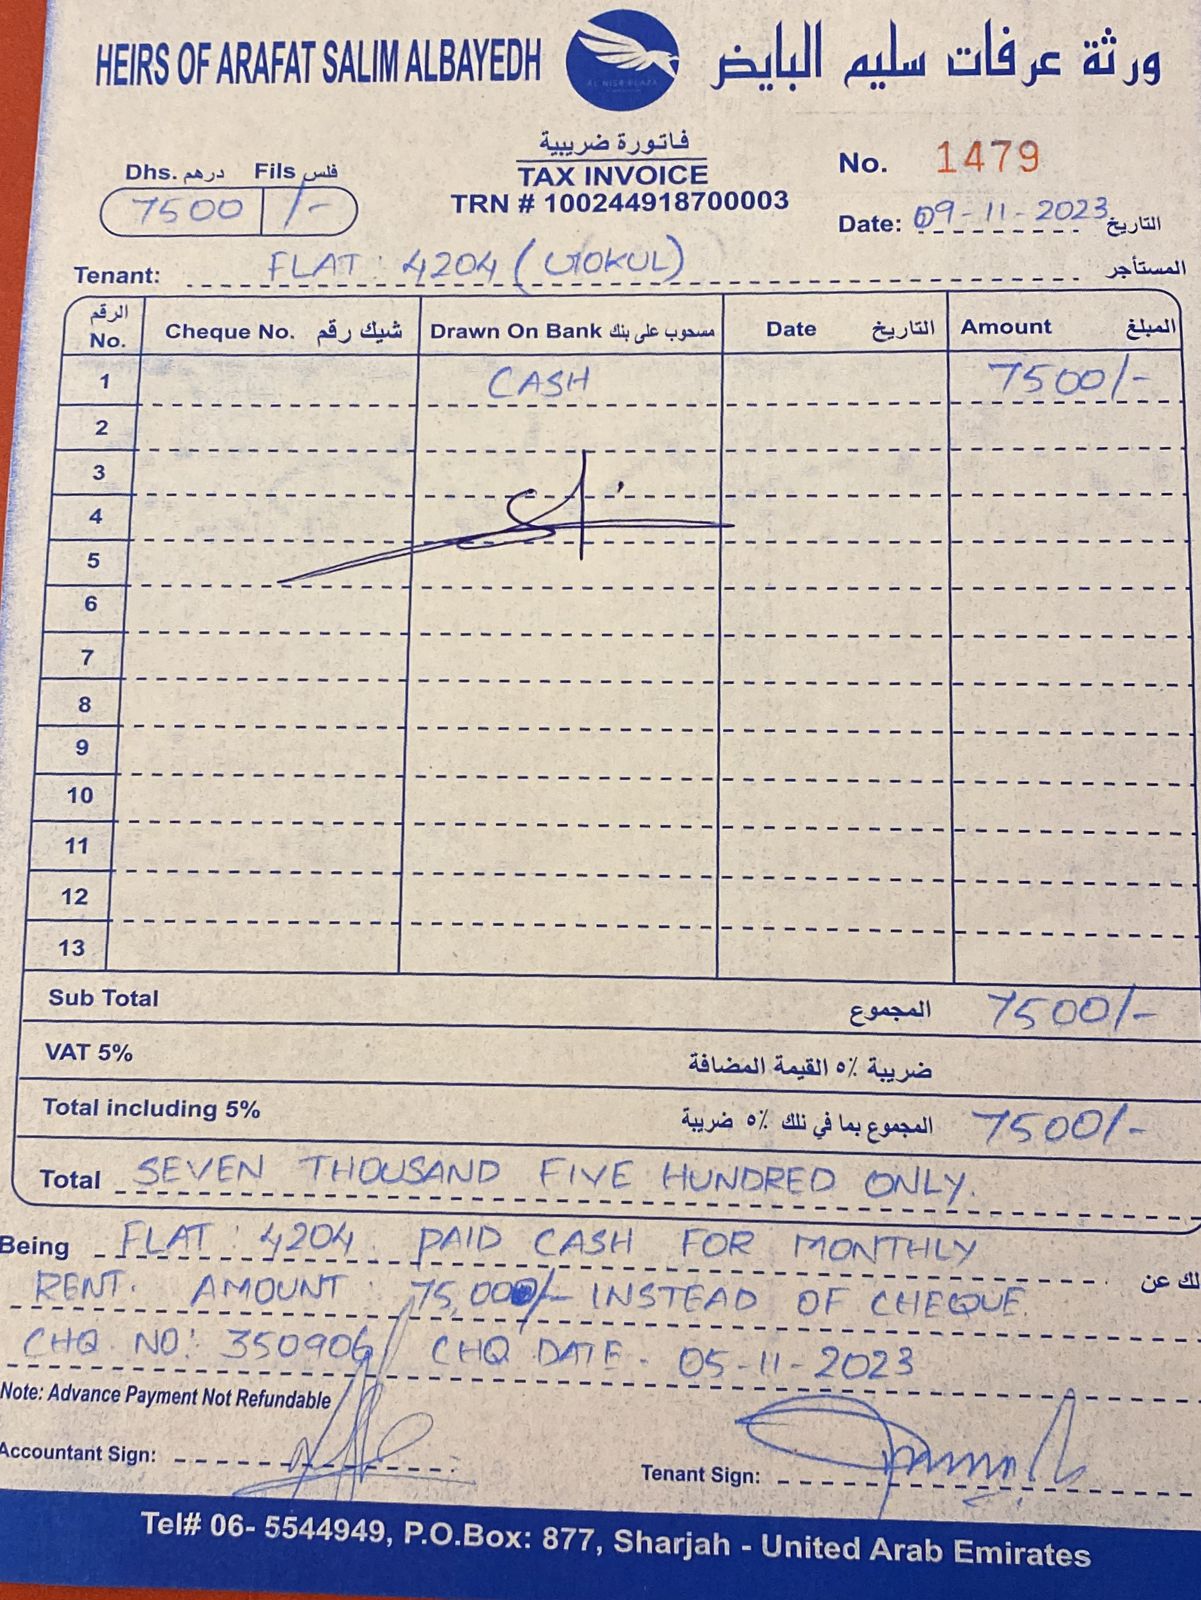 HEIRS OF ARAFAT SALIM ALBAYEDH
AL NISR PLAZA
ورثة عرفات سليم البايض
Dhs. درهم Fils فلس
7500 /-
فاتورة ضريبية
TAX INVOICE
TRN # 100244918700003
No. 1479
Date: 09-11-2023 التاريخ
Tenant: FLAT : 4204 (GOKUL) المستأجر
الرقم No. Cheque No. شيك رقم Drawn On Bank مسحوب على بنك Date التاريخ Amount المبلغ
1 CASH 7500/-
2
3
4
5
6
7
8
9
10
11
12
13
Sub Total المجموع 7500/-
VAT 5% ضريبة ٥٪ القيمة المضافة
Total including 5% المجموع بما في نلك ٥٪ ضريبة 7500/-
Total SEVEN THOUSAND FIVE HUNDRED ONLY.
Being FLAT : 4204 PAID CASH FOR MONTHLY
لك عن
RENT. AMOUNT : 75,000/- INSTEAD OF CHEQUE
CHQ NO: 350906 / CHQ DATE - 05-11-2023
Note: Advance Payment Not Refundable
Accountant Sign:
Tenant Sign:
Tel# 06- 5544949, P.O.Box: 877, Sharjah - United Arab Emirates